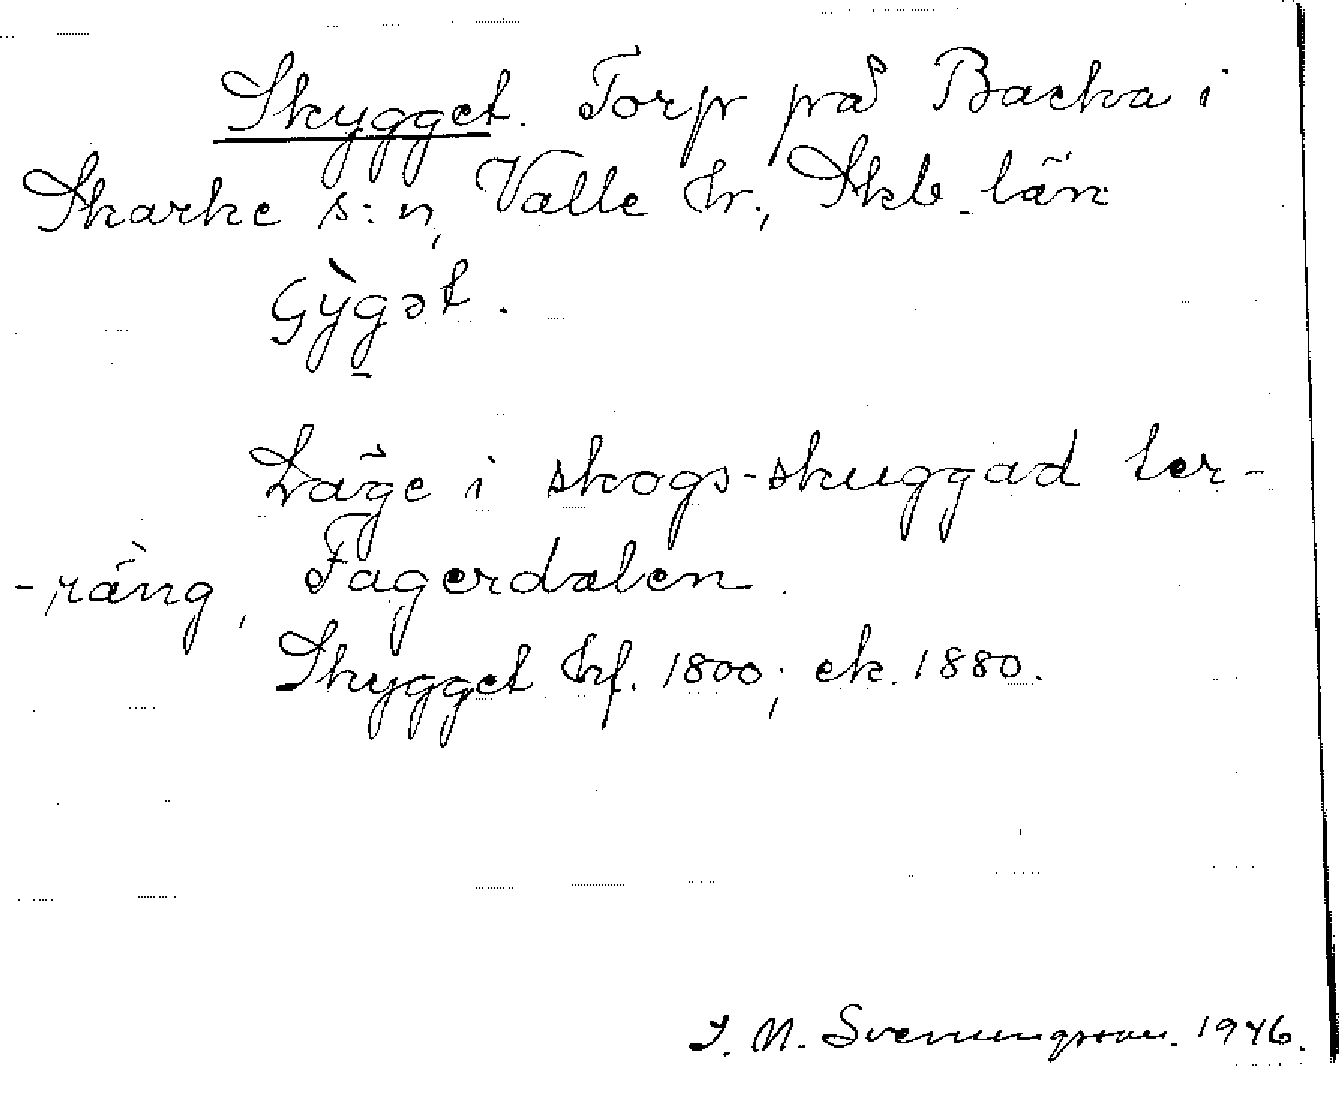 Skygget. Torp på Backa i
Skarke s:n, Valle hr., Skb. län
Gỳg̱ət.
Läge i skogs-skuggad ter-
-räng, Fagerdalen.
Skygget hf. 1800; ek. 1880.
J. N. Svenungsson. 1946.